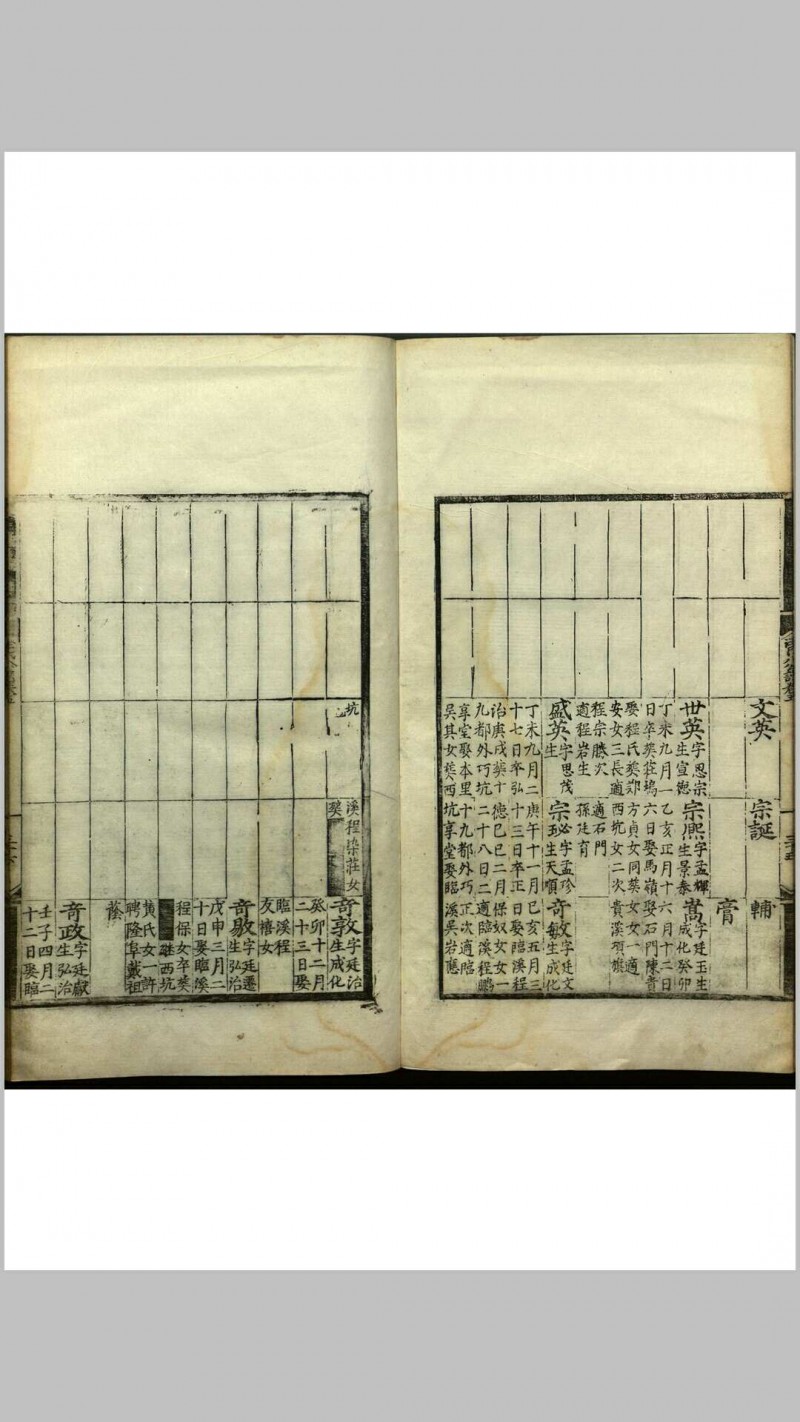 文英
世英字思宗
生宣德
丁未九月一
日卒葬莊塢
娶程氏葬鄣
安女三長適
程宗勝次
適程岩生
盛英字思茂
生
丁未九月二
十七日卒弘
治庚戌葬十
九都外巧坑
享堂娶本里
吳其女葬西
宗誕
宗熈字孟輝
生景泰
乙亥正月十
六日娶馬嶺
方貞女同葬
西坑女二次
適石門
孫廷育
宗必字孟珍
生天順
庚午十一月
十三日卒正
德己巳二月
二十八日二
十九都外巧
坑享堂娶臨
輔
膏
嵩字廷玉生
成化癸卯
六月十二日
娶石門陳貴
女女一適
貴溪項旗
奇敏字廷文
生成化
己亥五月三
日娶臨溪程
保奴女女一
適臨溪程鵬
正次適臨
溪吳岩應
坑
溪程染莊女
葬
奇敦字廷治
生成化
癸卯十二月
二十三日娶
臨溪程
友禧女
奇敭字廷遷
生弘治
戊申三月二
十日娶臨溪
程保女卒葬
継西坑
黃氏女一許
聘隆阜戴祖
蔭
奇政字廷獻
生弘治
壬子四月二
十二日娶臨